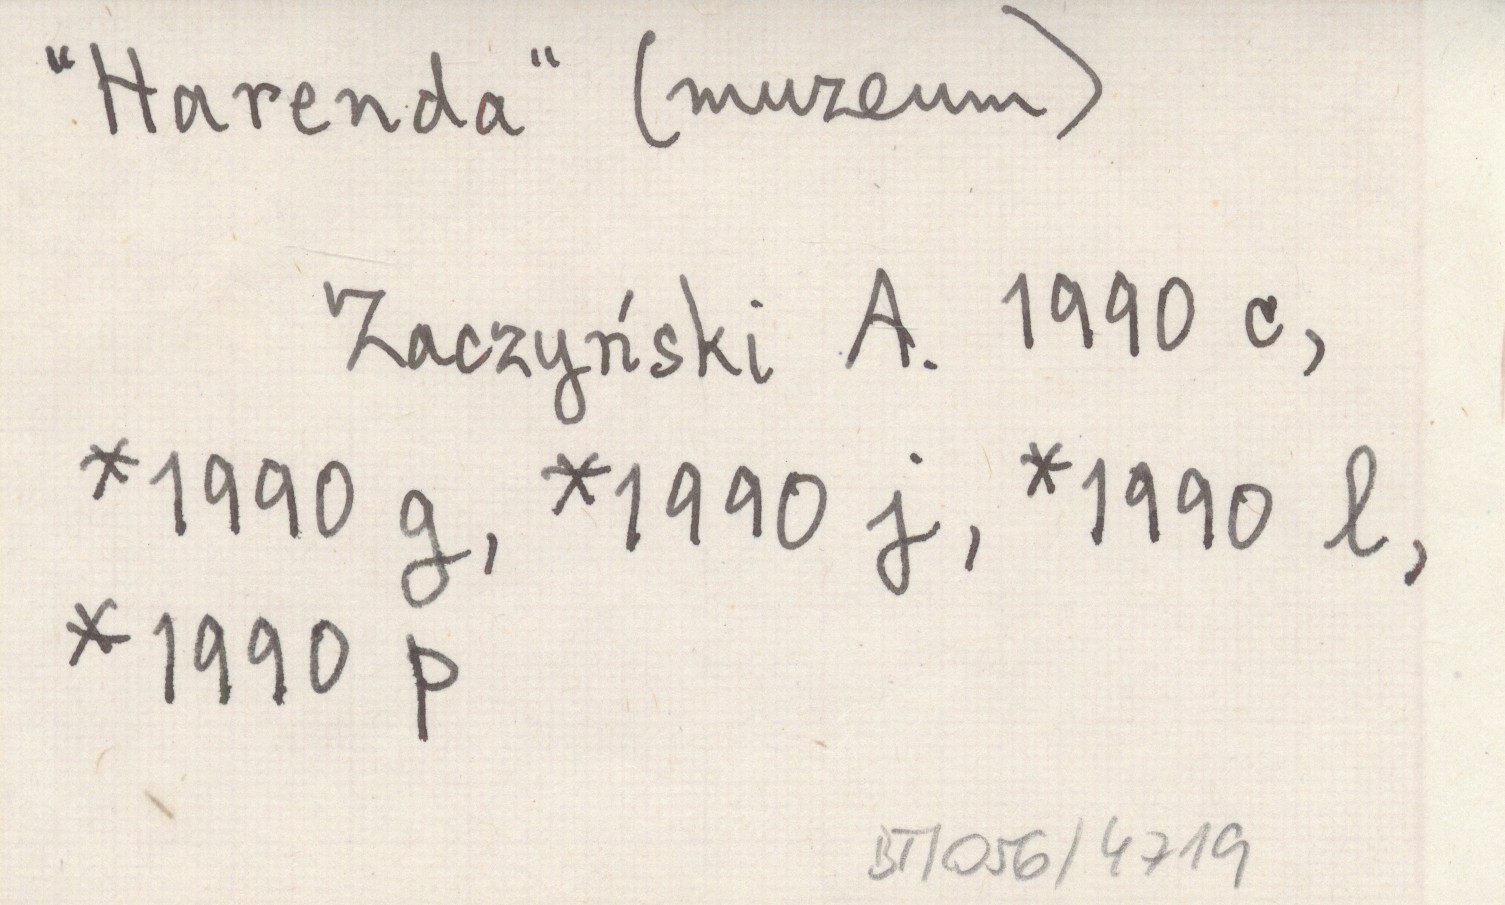 "Harenda" (muzeum)
Zaczyński A. 1990 c,
*1990 g, *1990 j, *1990 l,
*1990 p
BT/056/4719